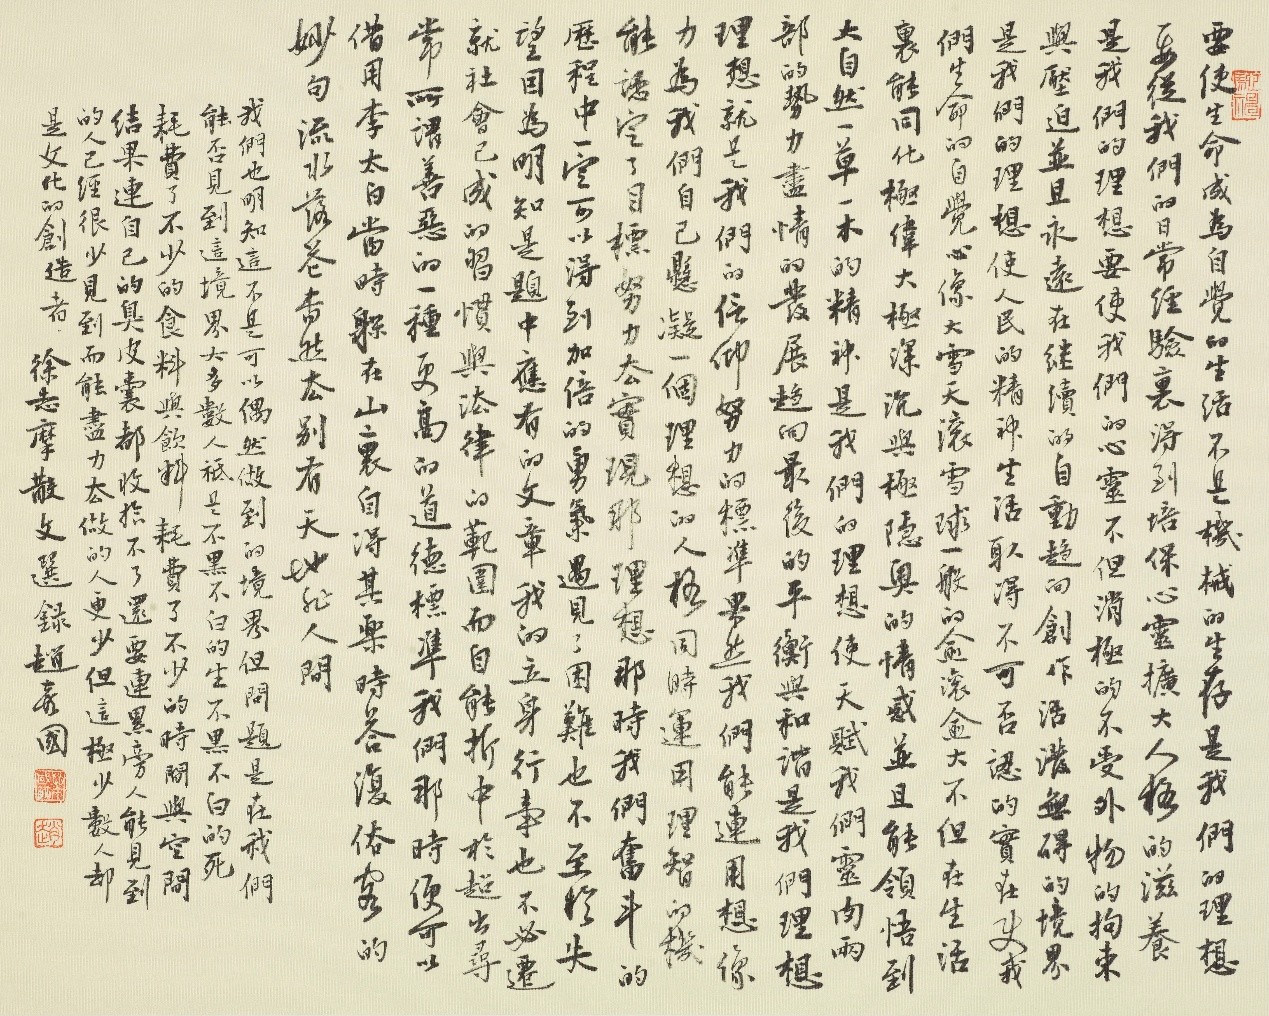 要使生命成為自覺的生活不是機械的生存是我們的理想
要從我們的日常經驗裏得到培保心靈擴大人格的滋養
是我們的理想要使我們的心靈不但消極的不受外物的拘束
與壓迫並且永遠在繼續的自動趨向創作活潑無碍的境界
是我們的理想使人民的精神生活取得不可否認的實在使我
們生命的自覺心像大雪天滾雪球一般的愈滾愈大不但在生活
裏能同化極偉大極深沉與極隱奧的情感並且能領悟到
大自然一草一木的精神是我們的理想使天賦我們靈肉兩
部的勢力盡情的發展趨向最後的平衡與和諧是我們理想
理想就是我們的信仰努力的標準果然我們能連用想像
力為我們自己懸凝一個理想的人格同時運用理智的機
能認定了目標努力去實現那理想那時我們奮斗的
歷程中一定可以得到加倍的勇氣遇見了困難也不至於失
望因為明知是題中應有的文章我的立身行事也不必遷
就社會已成的習慣與法律的範圍而自能折中於超出尋
常所謂善惡的一種更高的道德標準我們那時便可以
借用李太白當時躲在山裏自得其樂時答復俗客的
妙句流水落花杳然去別有天地非人間
我們也明知這不是可以偶然做到的境界但問題是在我們
能否見到這境界大多數人祇是不黑不白的生不黑不白的死
耗費了不少的食料與飲料耗費了不少的時間與空間
結果連自己的臭皮囊都收拾不了還要連累旁人能見到
的人已經很少見到而能盡力去做的人更少但這極少數人却
是文化的創造者 徐志摩散文選錄 趙家國